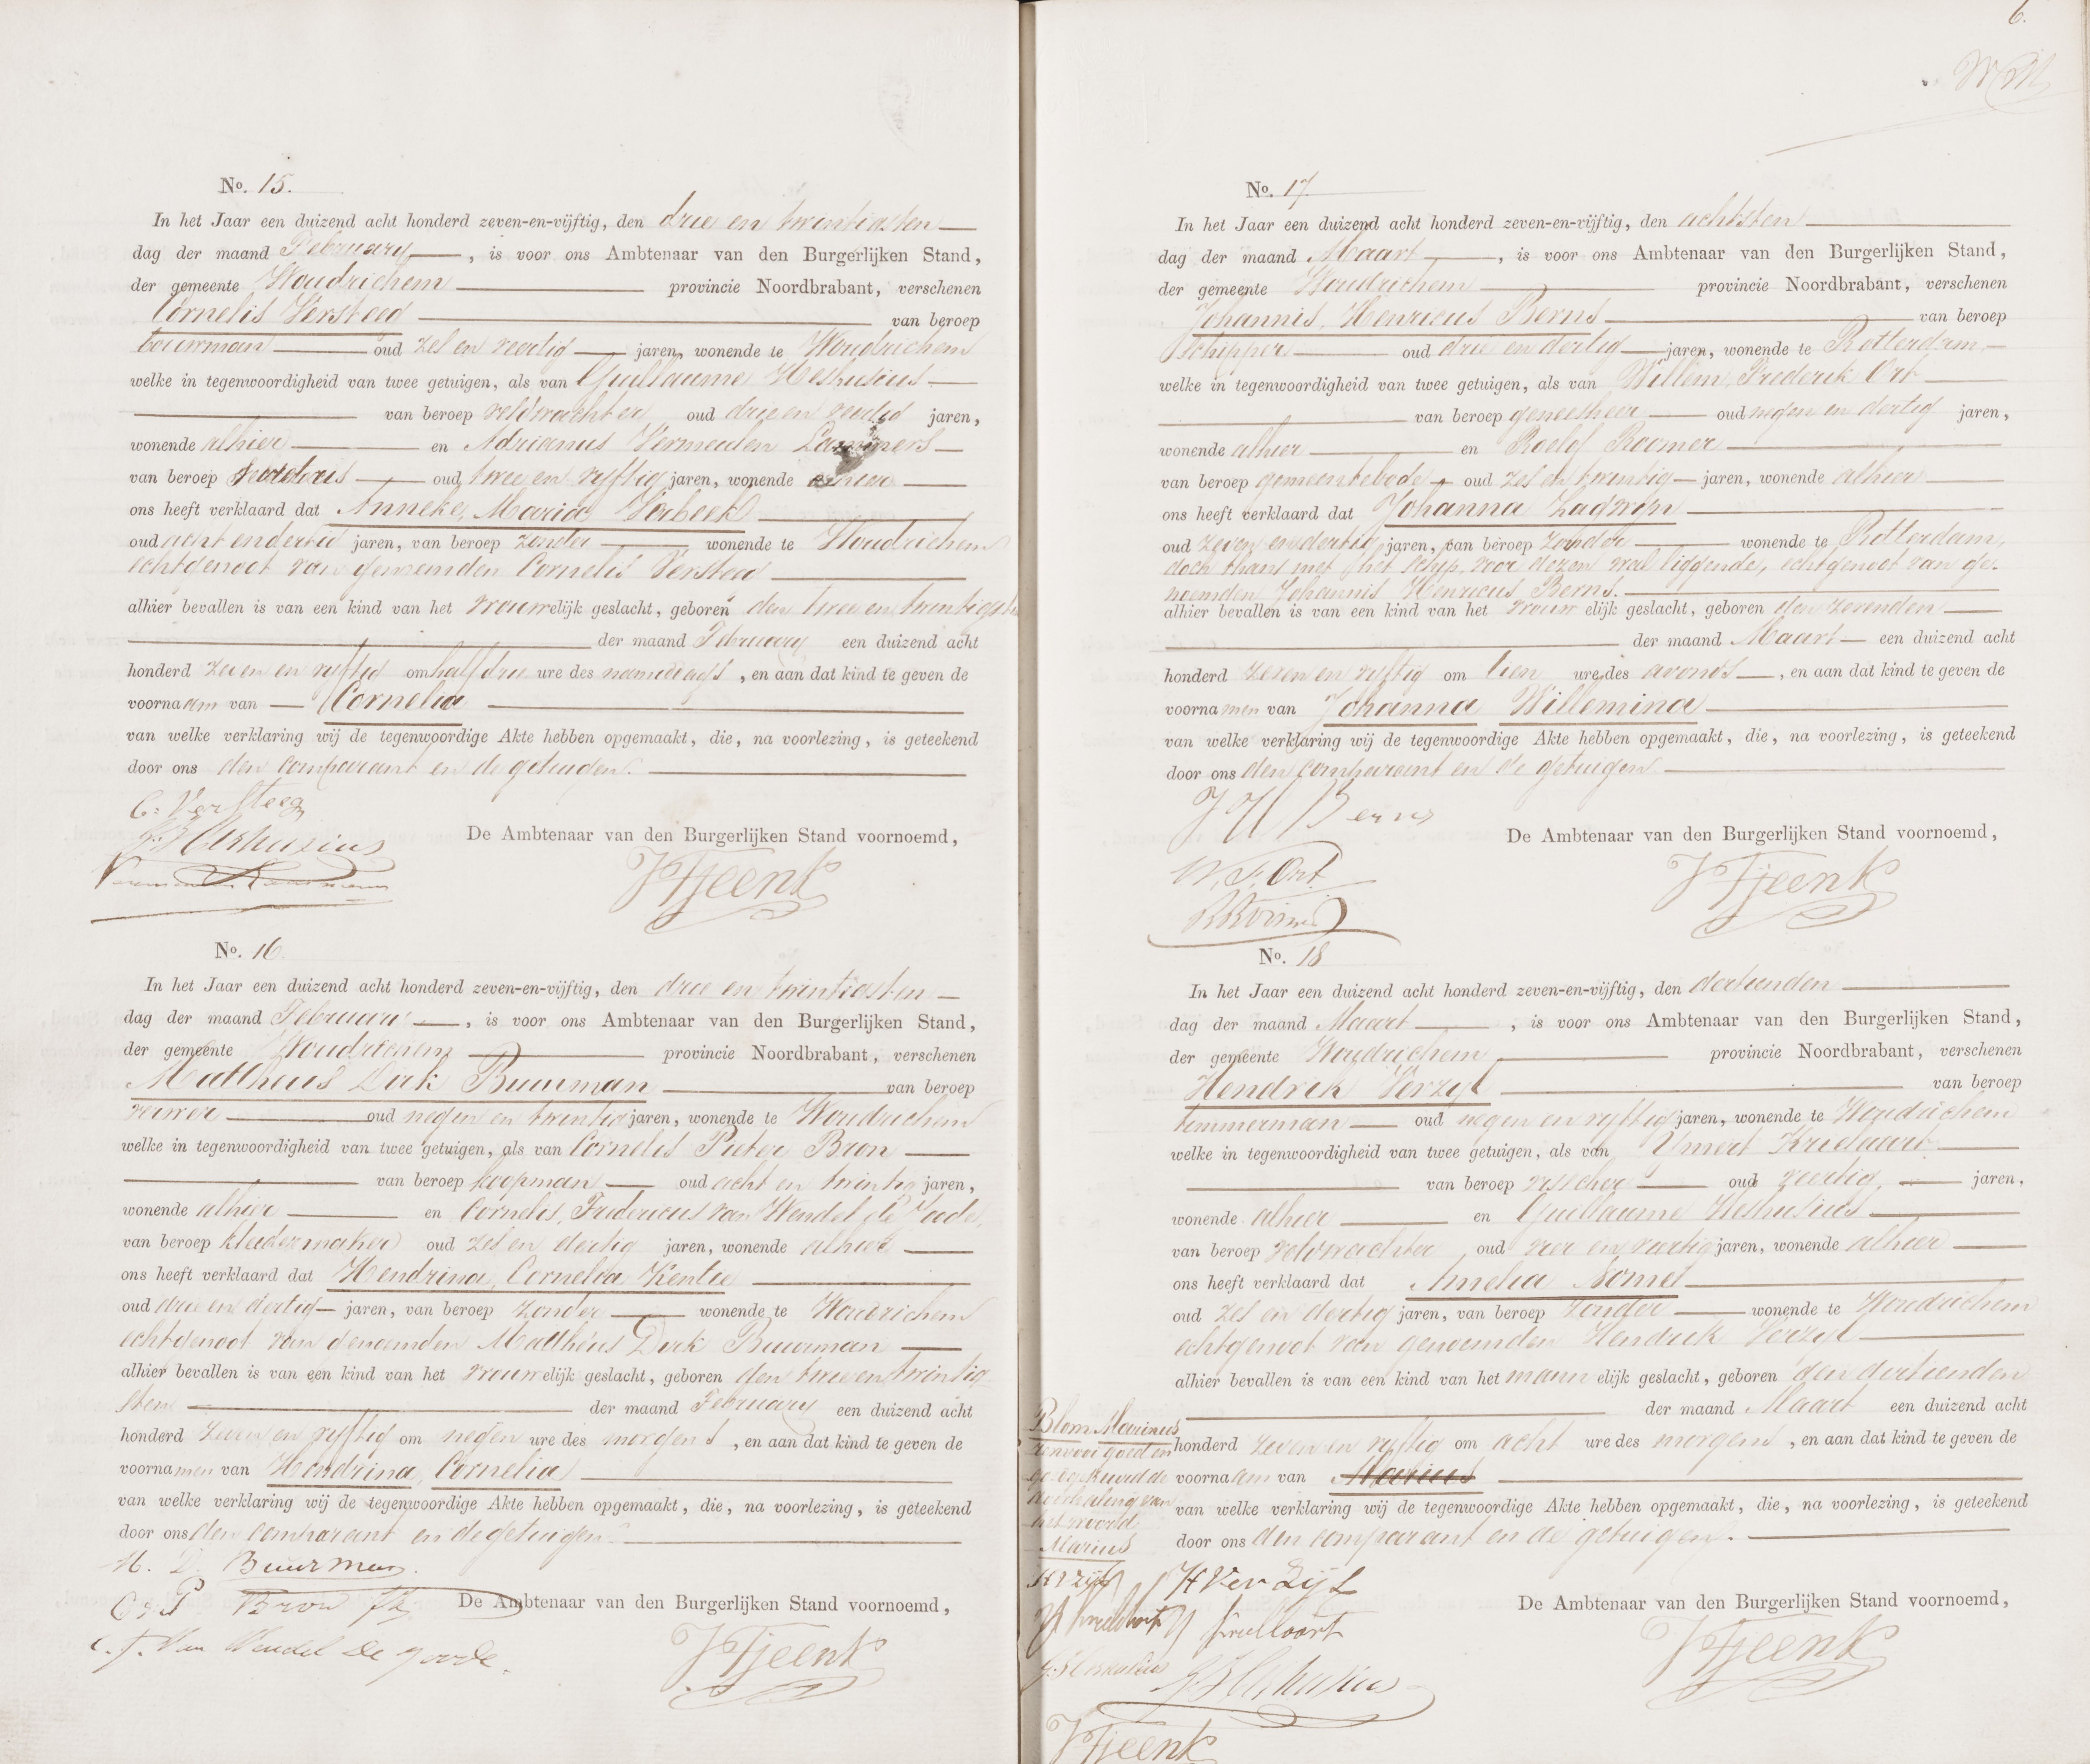 No. 15.
In het Jaar een duizend acht honderd zeven-en-vijftig, den drie en twintigsten
dag der maand February, is voor ons Ambtenaar van den Burgerlijken Stand,
der gemeente Woudrichem provincie Noordbrabant, verschenen
Cornelis Versteeg van beroep
bouwman oud zes en veertig jaren, wonende te Woudrichem
welke in tegenwoordigheid van twee getuigen, als van Guillaume Heshusius
van beroep veldwachter oud drie en veertig jaren,
wonende alhier en Adrianus Vermeulen
van beroep oud twee en vyftig jaren, wonende alhier
ons heeft verklaard dat Anneke, Maria Verbeek
oud acht en dertig jaren, van beroep zonder wonende te Woudrichem
echtgenoot van genoemden Cornelis Versteeg
alhier bevallen is van een kind van het vrouwelijk geslacht, geboren den twee en twintigsten
der maand February een duizend acht
honderd zeven en vyftig om half drie ure des namiddags, en aan dat kind te geven de
voornaam van Cornelia
van welke verklaring wij de tegenwoordige Akte hebben opgemaakt, die, na voorlezing, is geteekend
door ons den comparant en de getuigen.
C: Versteeg
G: Heshusius
De Ambtenaar van den Burgerlijken Stand voornoemd,
Tjeenk
No. 16.
In het Jaar een duizend acht honderd zeven-en-vijftig, den drie en twintigsten
dag der maand February, is voor ons Ambtenaar van den Burgerlijken Stand,
der gemeente Woudrichem provincie Noordbrabant, verschenen
Mattheus Dirk Buurman van beroep
verwer oud negen en twintig jaren, wonende te Woudrichem
welke in tegenwoordigheid van twee getuigen, als van Cornelis Pieter Bron
van beroep koopman oud acht en twintig jaren,
wonende alhier en Cornelis, Fredericus van Wendel de Joode,
van beroep kleedermaker oud zes en dertig jaren, wonende alhier
ons heeft verklaard dat Hendrina, Cornelia Kentie
oud drie en dertig jaren, van beroep zonder wonende te Woudrichem
echtgenoot van genoemden Mattheus Dirk Buurman
alhier bevallen is van een kind van het vrouwelijk geslacht, geboren den twee en twintig
sten der maand February een duizend acht
honderd zeven en vyftig om negen ure des morgens, en aan dat kind te geven de
voornamen van Hendrina, Cornelia
van welke verklaring wij de tegenwoordige Akte hebben opgemaakt, die, na voorlezing, is geteekend
door ons den comparant en de getuigen.
M. D. Buurman.
C: P Bron
De Ambtenaar van den Burgerlijken Stand voornoemd,
C. F. Van Wendel De Joode.
Tjeenk
6.
No. 17.
In het Jaar een duizend acht honderd zeven-en-vijftig, den achtsten
dag der maand Maart, is voor ons Ambtenaar van den Burgerlijken Stand,
der gemeente Woudrichem provincie Noordbrabant, verschenen
Johannis, Henricus Berns van beroep
schipper oud drie en dertig jaren, wonende te Rotterdam
welke in tegenwoordigheid van twee getuigen, als van Willem, Frederik Ort
van beroep geneesheer oud negen en dertig jaren,
wonende alhier en Roelof Roomer
van beroep gemeentebode oud zes en twintig jaren, wonende alhier
ons heeft verklaard dat Johanna Zagwyn
oud zeven en dertig jaren, van beroep zonder wonende te Rotterdam,
doch thans met het schip voor dezen wal liggende, echtgenoot van ge-
noemden Johannis Henricus Berns.
alhier bevallen is van een kind van het vrouwelijk geslacht, geboren den zevenden
der maand Maart een duizend acht
honderd zeven en vyftig om tien ure des avonds, en aan dat kind te geven de
voornamen van Johanna Willemina
van welke verklaring wij de tegenwoordige Akte hebben opgemaakt, die, na voorlezing, is geteekend
door ons den comparant en de getuigen
J H Berns
De Ambtenaar van den Burgerlijken Stand voornoemd,
W. F. Ort
Tjeenk
R Roomer
No. 18
In het Jaar een duizend acht honderd zeven-en-vijftig, den dertienden
dag der maand Maart, is voor ons Ambtenaar van den Burgerlijken Stand,
der gemeente Woudrichem provincie Noordbrabant, verschenen
Hendrik Verzyl van beroep
timmerman oud negen en vyftig jaren, wonende te Woudrichem
welke in tegenwoordigheid van twee getuigen, als van Ymert
van beroep visscher oud veertig jaren,
wonende alhier en Guillaume Heshusius
van beroep veldwachter oud vier en veertig jaren, wonende alhier
ons heeft verklaard dat Amelia
oud zes en dertig jaren, van beroep zonder wonende te Woudrichem
echtgenoot van genoemden Hendrik Verzyl
alhier bevallen is van een kind van het mannelijk geslacht, geboren den dertienden
der maand Maart een duizend acht
honderd zeven en vyftig om acht ure des morgens, en aan dat kind te geven de
voornaam van Marius
van welke verklaring wij de tegenwoordige Akte hebben opgemaakt, die, na voorlezing, is geteekend
door ons den comparant en de getuigen.
Blom Marinus
goedgekeurd de
doorhaling van
het woord
Marius
H Verzijl
G: Heshusius
G Heshusius
De Ambtenaar van den Burgerlijken Stand voornoemd,
Tjeenk
Tjeenk